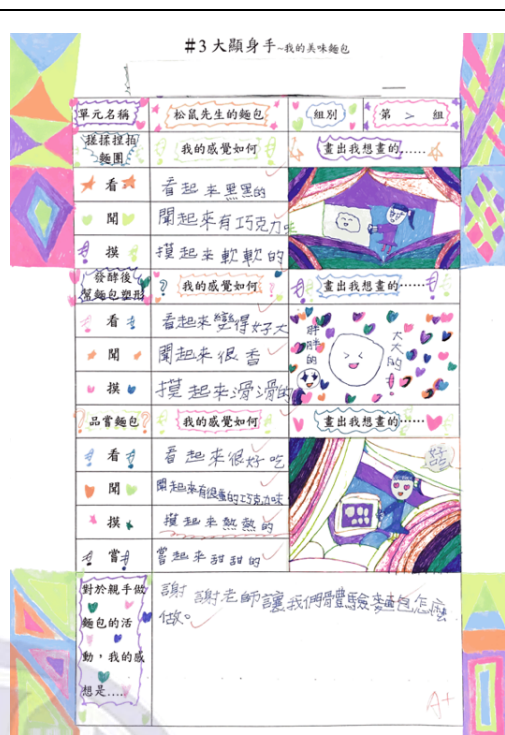 #3 大顯身手~我的美味麵包
單元名稱 松鼠先生的麵包 組別 第 二 組
搓揉捏拍麵團 我的感覺如何 畫出我想畫的……
看 看起來黑黑的
聞 聞起來有巧克力味
摸 摸起來軟軟的
發酵後幫麵包塑形 我的感覺如何 畫出我想畫的……
看 看起來變得好大
聞 聞起來很香
摸 摸起來滑滑的
胖胖的
大大的
品嘗麵包 我的感覺如何 畫出我想畫的……
看 看起來很好吃
聞 聞起來有很重的巧克力味
摸 摸起來熱熱的
嘗 嘗起來甜甜的
對於親手做
麵包的活
動，我的感
想是……
謝謝老師讓我們體驗麵包怎麼
做。
A+